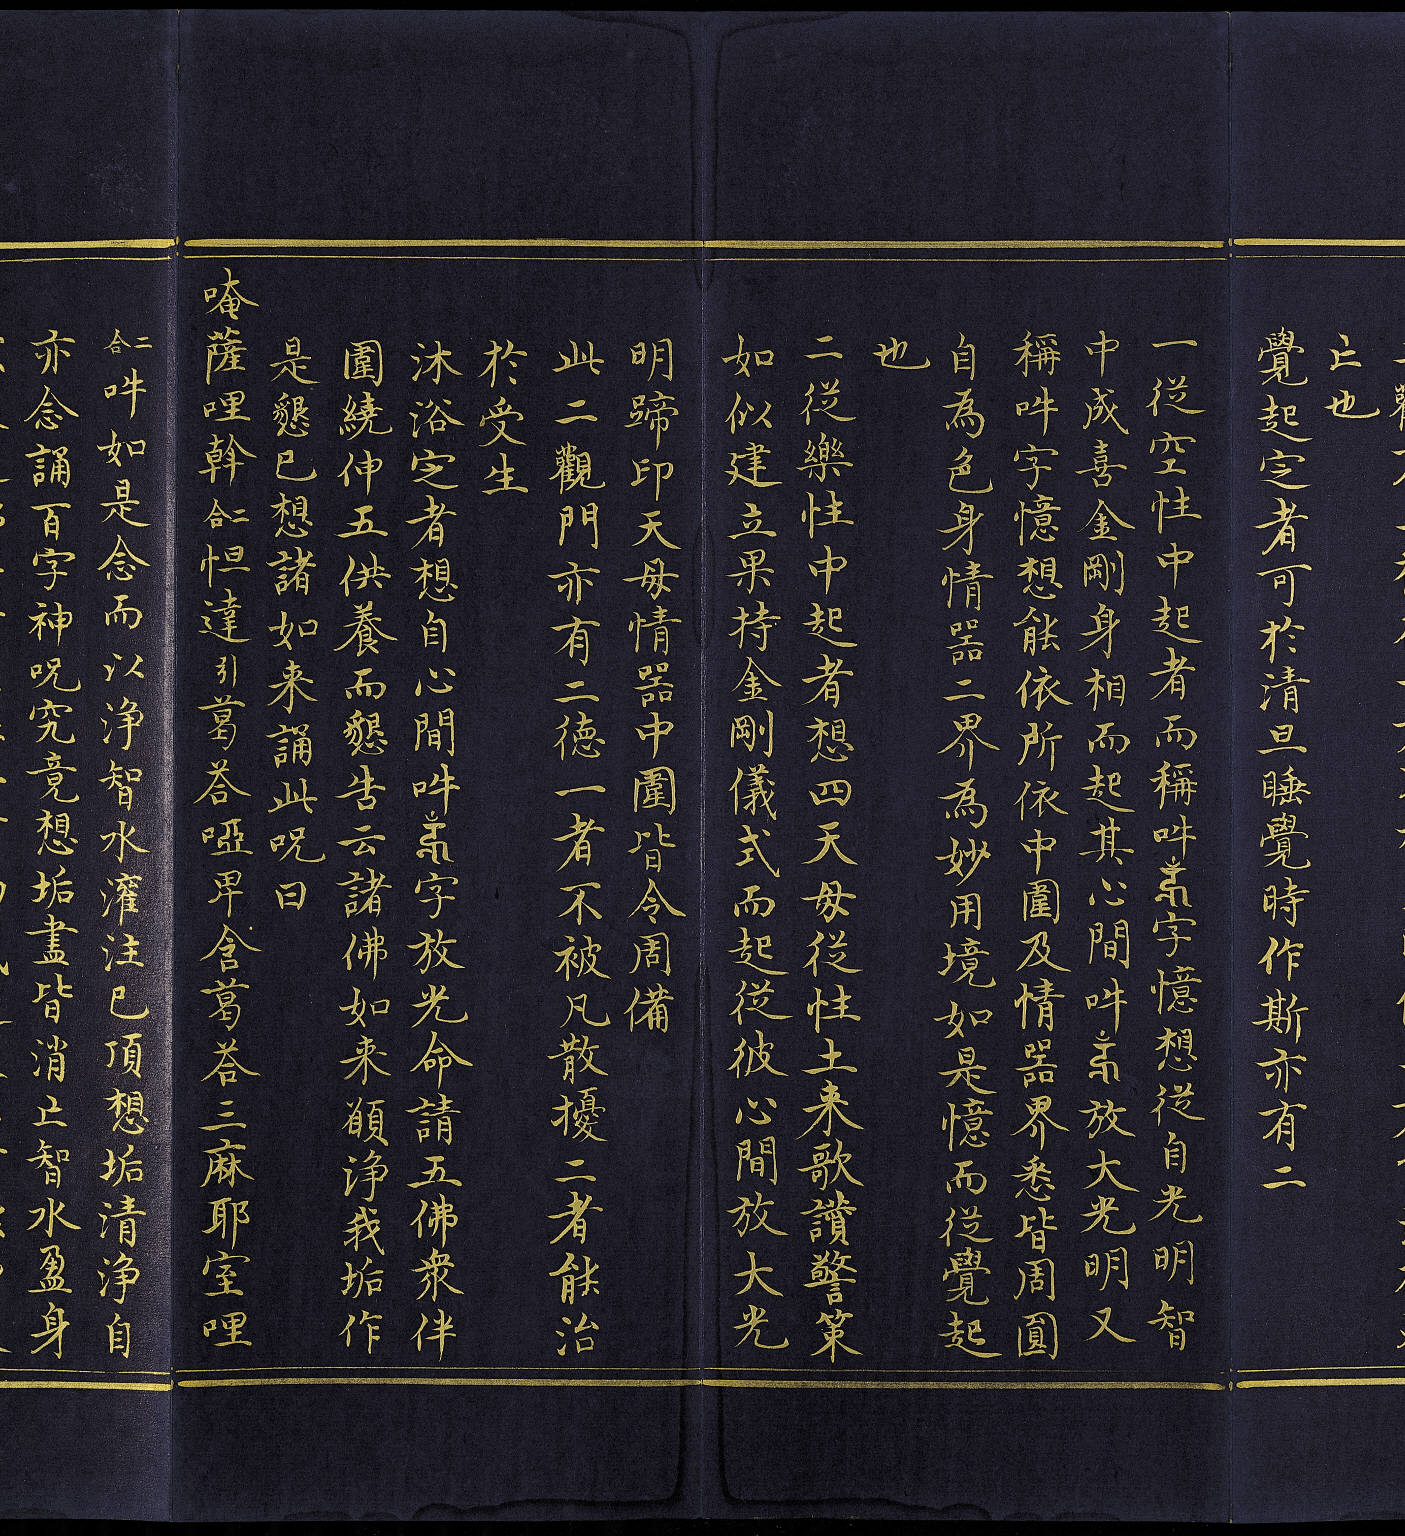 亡也
覺起定者可於清旦睡覺時作斯亦有二
一從空性中起者而稱吽字憶想從自光明智
中成喜金剛身相而起其心間吽放大光明又
稱吽字憶想能依所依中圍及情器界悉皆周圓
自為色身情器二界為妙用境如是憶而從覺起
也
二從樂性中起者想四天母從性土来歌讚警策
如似建立果持金剛儀式而起從彼心間放大光
明蹄印天母情器中圍皆令周備
此二觀門亦有二德一者不被凡散擾二者能治
於受生
沐浴定者想自心間吽字放光命請五佛衆伴
圍繞伸五供養而懇告云諸佛如来願淨我垢作
是懇已想諸如来誦此呪曰
唵薩哩斡二合怛達引葛荅啞卑含葛荅三麻耶室哩
二合吽如是念而以淨智水灌注已頂想垢清淨自
亦念誦百字神呪究竟想垢盡皆消亡智水盈身